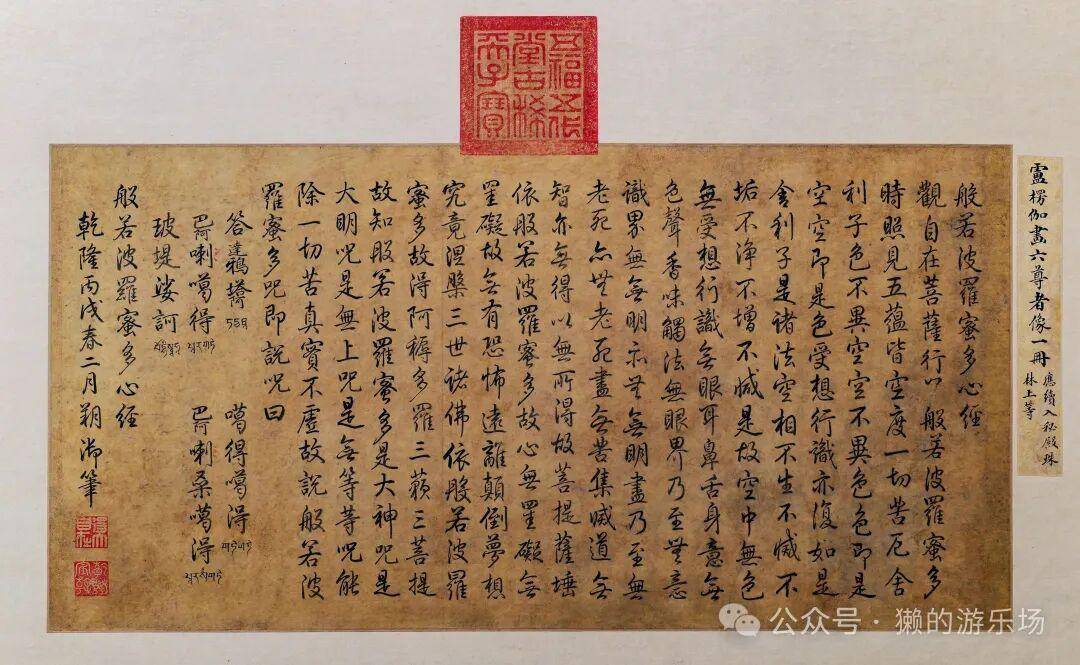 五福五代
堂古稀
天子寶
盧楞伽畫六尊者像一冊
應續入秘殿珠
林上等
般若波羅蜜多心經
觀自在菩薩行以般若波羅蜜多
時照見五蘊皆空度一切苦厄舍
利子色不異空空不異色色即是
空空即是色受想行識亦復如是
舍利子是諸法空相不生不滅不
垢不淨不增不減是故空中無色
無受想行識無眼耳鼻舌身意無
色聲香味觸法無眼界乃至無意
識界無無明亦無無明盡乃至無
老死亦無老死盡無苦集滅道無
智亦無得以無所得故菩提薩埵
依般若波羅蜜多故心無罣礙無
罣礙故無有恐怖遠離顛倒夢想
究竟涅槃三世諸佛依般若波羅
蜜多故得阿耨多羅三藐三菩提
故知般若波羅蜜多是大神咒是
大明咒是無上咒是無等等咒能
除一切苦真實不虛故說般若波
羅蜜多咒即說咒曰
答達鴉塔 噶得噶得
巴阿喇噶得 巴阿喇桑噶得
玻提娑訶
般若波羅蜜多心經
乾隆丙戌春二月朔御筆
公众号·獭的游乐场